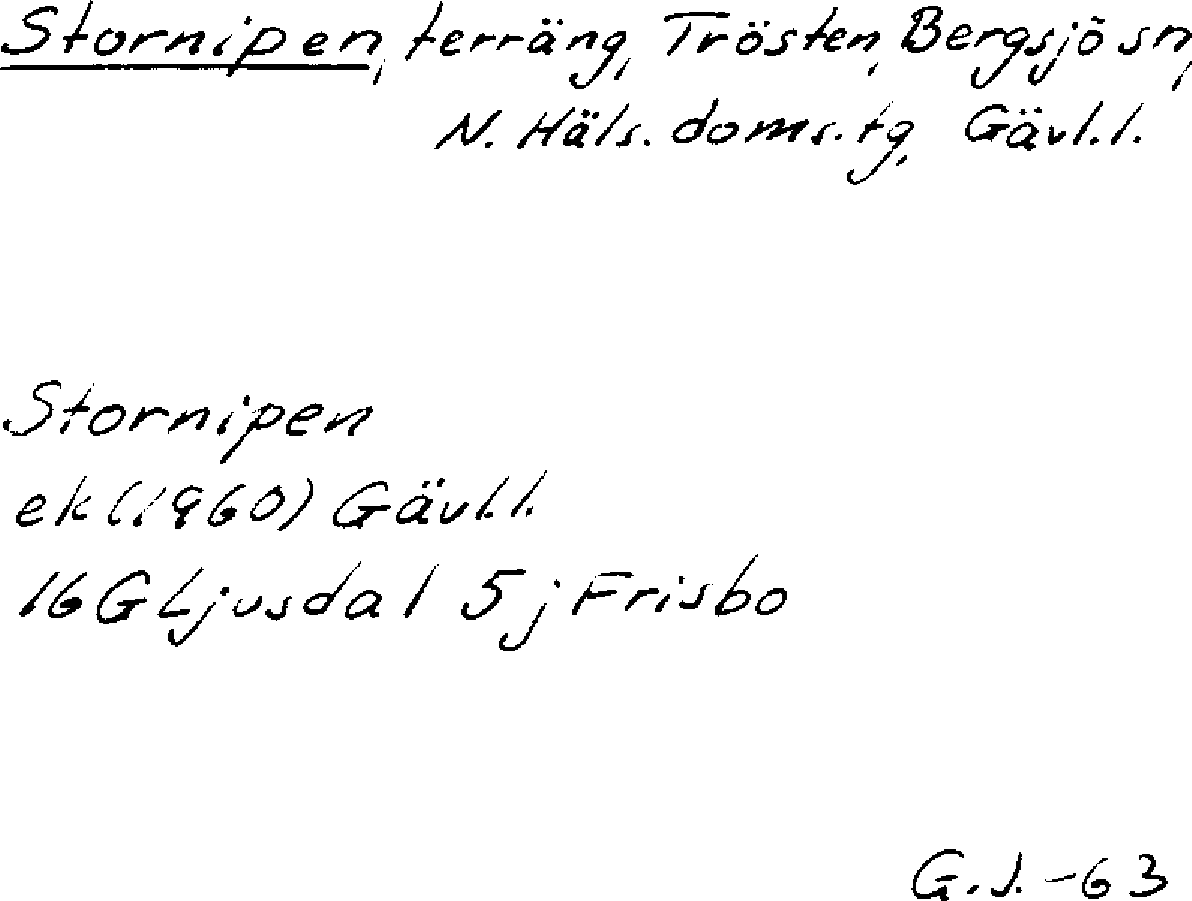 Stornipen, terräng, Trösten, Bergsjö sn,
N. Häls. doms. tg, Gävl. l.
Stornipen
ek (1960) Gävl. l.
16 G Ljusdal 5 j Frisbo
G. J. -63